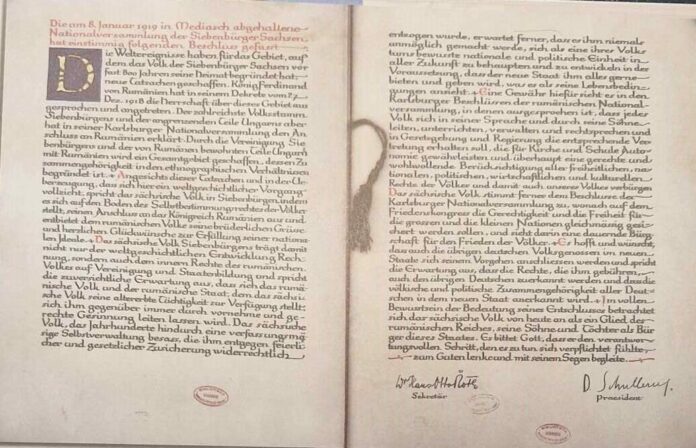 Die am 8. Januar 1919 in Mediasch abgehaltene
Nationalversammlung der Siebenbürger Sachsen,
hat einstimmig folgenden Beschluss gefasst
Die Weltereignisse haben für das Gebiet, auf
dem das Volk der Siebenbürger Sachsen vor
fast 800 Jahren seine Heimat begründet hat,
neue Tatsachen geschaffen. König Ferdinand
von Rumänien hat in seinem Dekrete vom 27
Dez. 1918 die Herrschaft über dieses Gebiet aus-
gesprochen und angetreten. Der zahlreichste Volksstamm
Siebenbürgens und der angrenzenden Teile Ungarns aber
hat in seiner Karlsburger Nationalversammlung den An-
schluss an Rumänien erklärt. Durch die Vereinigung Sie-
benbürgens und der von Rumänen bewohnten Teile Ungarns
mit Rumänien wird ein Gesamtgebiet geschaffen, dessen Zu-
sammengehörigkeit in den ethnographischen Verhältnissen
begründet ist. Angesichts dieser Tatsachen und in der Ue-
berzeugung, dass sich hier ein weltgeschichtlicher Vorgang
vollzieht, spricht das sächsische Volk in Siebenbürgen, indem
es sich auf den Boden des Selbstbestimmungsrechtes der Völker
stellt, seinen Anschluss an das Königreich Rumänien aus und
entbietet dem rumänischen Volke seine brüderlichen Grüsse
und herzlichen Glückwünsche zur Erfüllung seiner nationa-
len Ideale. Das sächsische Volk Siebenbürgens trägt damit
nicht nur der weltgeschichtlichen Entwicklung Rech-
nung, sondern auch dem innern Rechte des rumänischen
Volkes auf Vereinigung und Staatenbildung und spricht
die zuversichtliche Erwartung aus, dass sich das rumä-
nische Volk und der rumänische Staat, dem das sächsi-
sche Volk seine altererbte Tüchtigkeit zur Verfügung stellt,
sich ihm gegenüber immer durch vornehme und ge-
rechte Gesinnung leiten lassen wird. Das sächsische
Volk, das Jahrhunderte hindurch eine verfassungsmä-
ssige Selbstverwaltung besass, die ihm entgegen feierli-
cher und gesetzlicher Zusicherung widerrechtlich
entzogen wurde, erwartet ferner, dass es ihm niemals
unmöglich gemacht werde, sich als eine ihres Volks
tums bewusste nationale und politische Einheit in
aller Zukunft zu behaupten und zu entwickeln in der
Voraussetzung, dass der neue Staat ihm alles gerne
bieten und geben wird, was es als seine Lebensbedin-
gungen ansieht. Eine Gewähr hiefür sieht es in den
Karlsburger Beschlüssen der rumänischen National-
versammlung, in denen ausgesprochen ist, dass jedes
Volk sich in seiner Sprache und durch seine Söhne
leiten, unterrichten, verwalten und rechtsprechen und
in Gesetzgebung und Regierung die entsprechende Ver-
tretung erhalten soll, die für Kirche und Schule Auto-
nomie gewährleisten und überhaupt eine gerechte und
wohlwollende Berücksichtigung aller freiheitlichen, na-
tionalen, politischen, wirtschaftlichen und kulturellen
Rechte der Völker und damit auch unseres Volkes verbürgen
Das sächsische Volk stimmt ferner dem Beschlusse der
Karlsburger Nationalversammlung zu, wonach auf dem
Friedenskongress die Gerechtigkeit und die Freiheit für
die grossen und die kleinen Nationen gleichmässig gesi-
chert werden sollen, und sieht darin eine dauernde Bürg-
schaft für den Frieden der Völker. Es hofft und wünscht,
dass auch die übrigen deutschen Volksgenossen im neuen
Staate sich seinem Vorgehen anschliessen werden und spricht
die Erwartung aus, dass die Rechte, die ihm gebühren,
auch den übrigen Deutschen zuerkannt werden und dass die
völkische und politische Zusammengehörigkeit aller Deut-
schen in dem neuen Staat anerkannt wird. Im vollen
Bewusstsein der Bedeutung seines Entschlusses betrachtet
sich das sächsische Volk von heute an als ein Glied des
rumänischen Reiches, seine Söhne und Töchter als Bür
ger dieses Staates. Es bittet Gott, dass er den verantwor-
tungsvollen Schritt, den es zu tun sich verpflichtet fühlte,
zum Guten lenke und mit seinem Segen begleite.
Dr Hans Otto Roth
Sekretär
D. Schullerus
Praesident